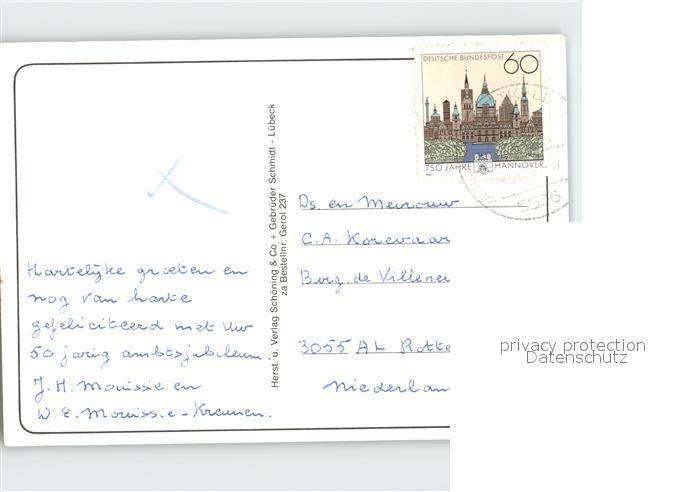 DEUTSCHE BUNDESPOST 60
750 JAHRE HANNOVER
Herst. u. Verlag Schöning & Co + Gebrüder Schmidt - Lübeck
za Bestellnr. Gerol 237
Hartelijke groeten en
nog van harte
gefeliciteerd met Uw
50 jarig ambtsjubileum.
J. H. Mourissie en
W. E. Mourissie - Kreunen.
Ds. en Mevrouw
C. A. Korevaar
Burg. de Villeneu
3055 AL Rotte
Niederlan
privacy protection
Datenschutz